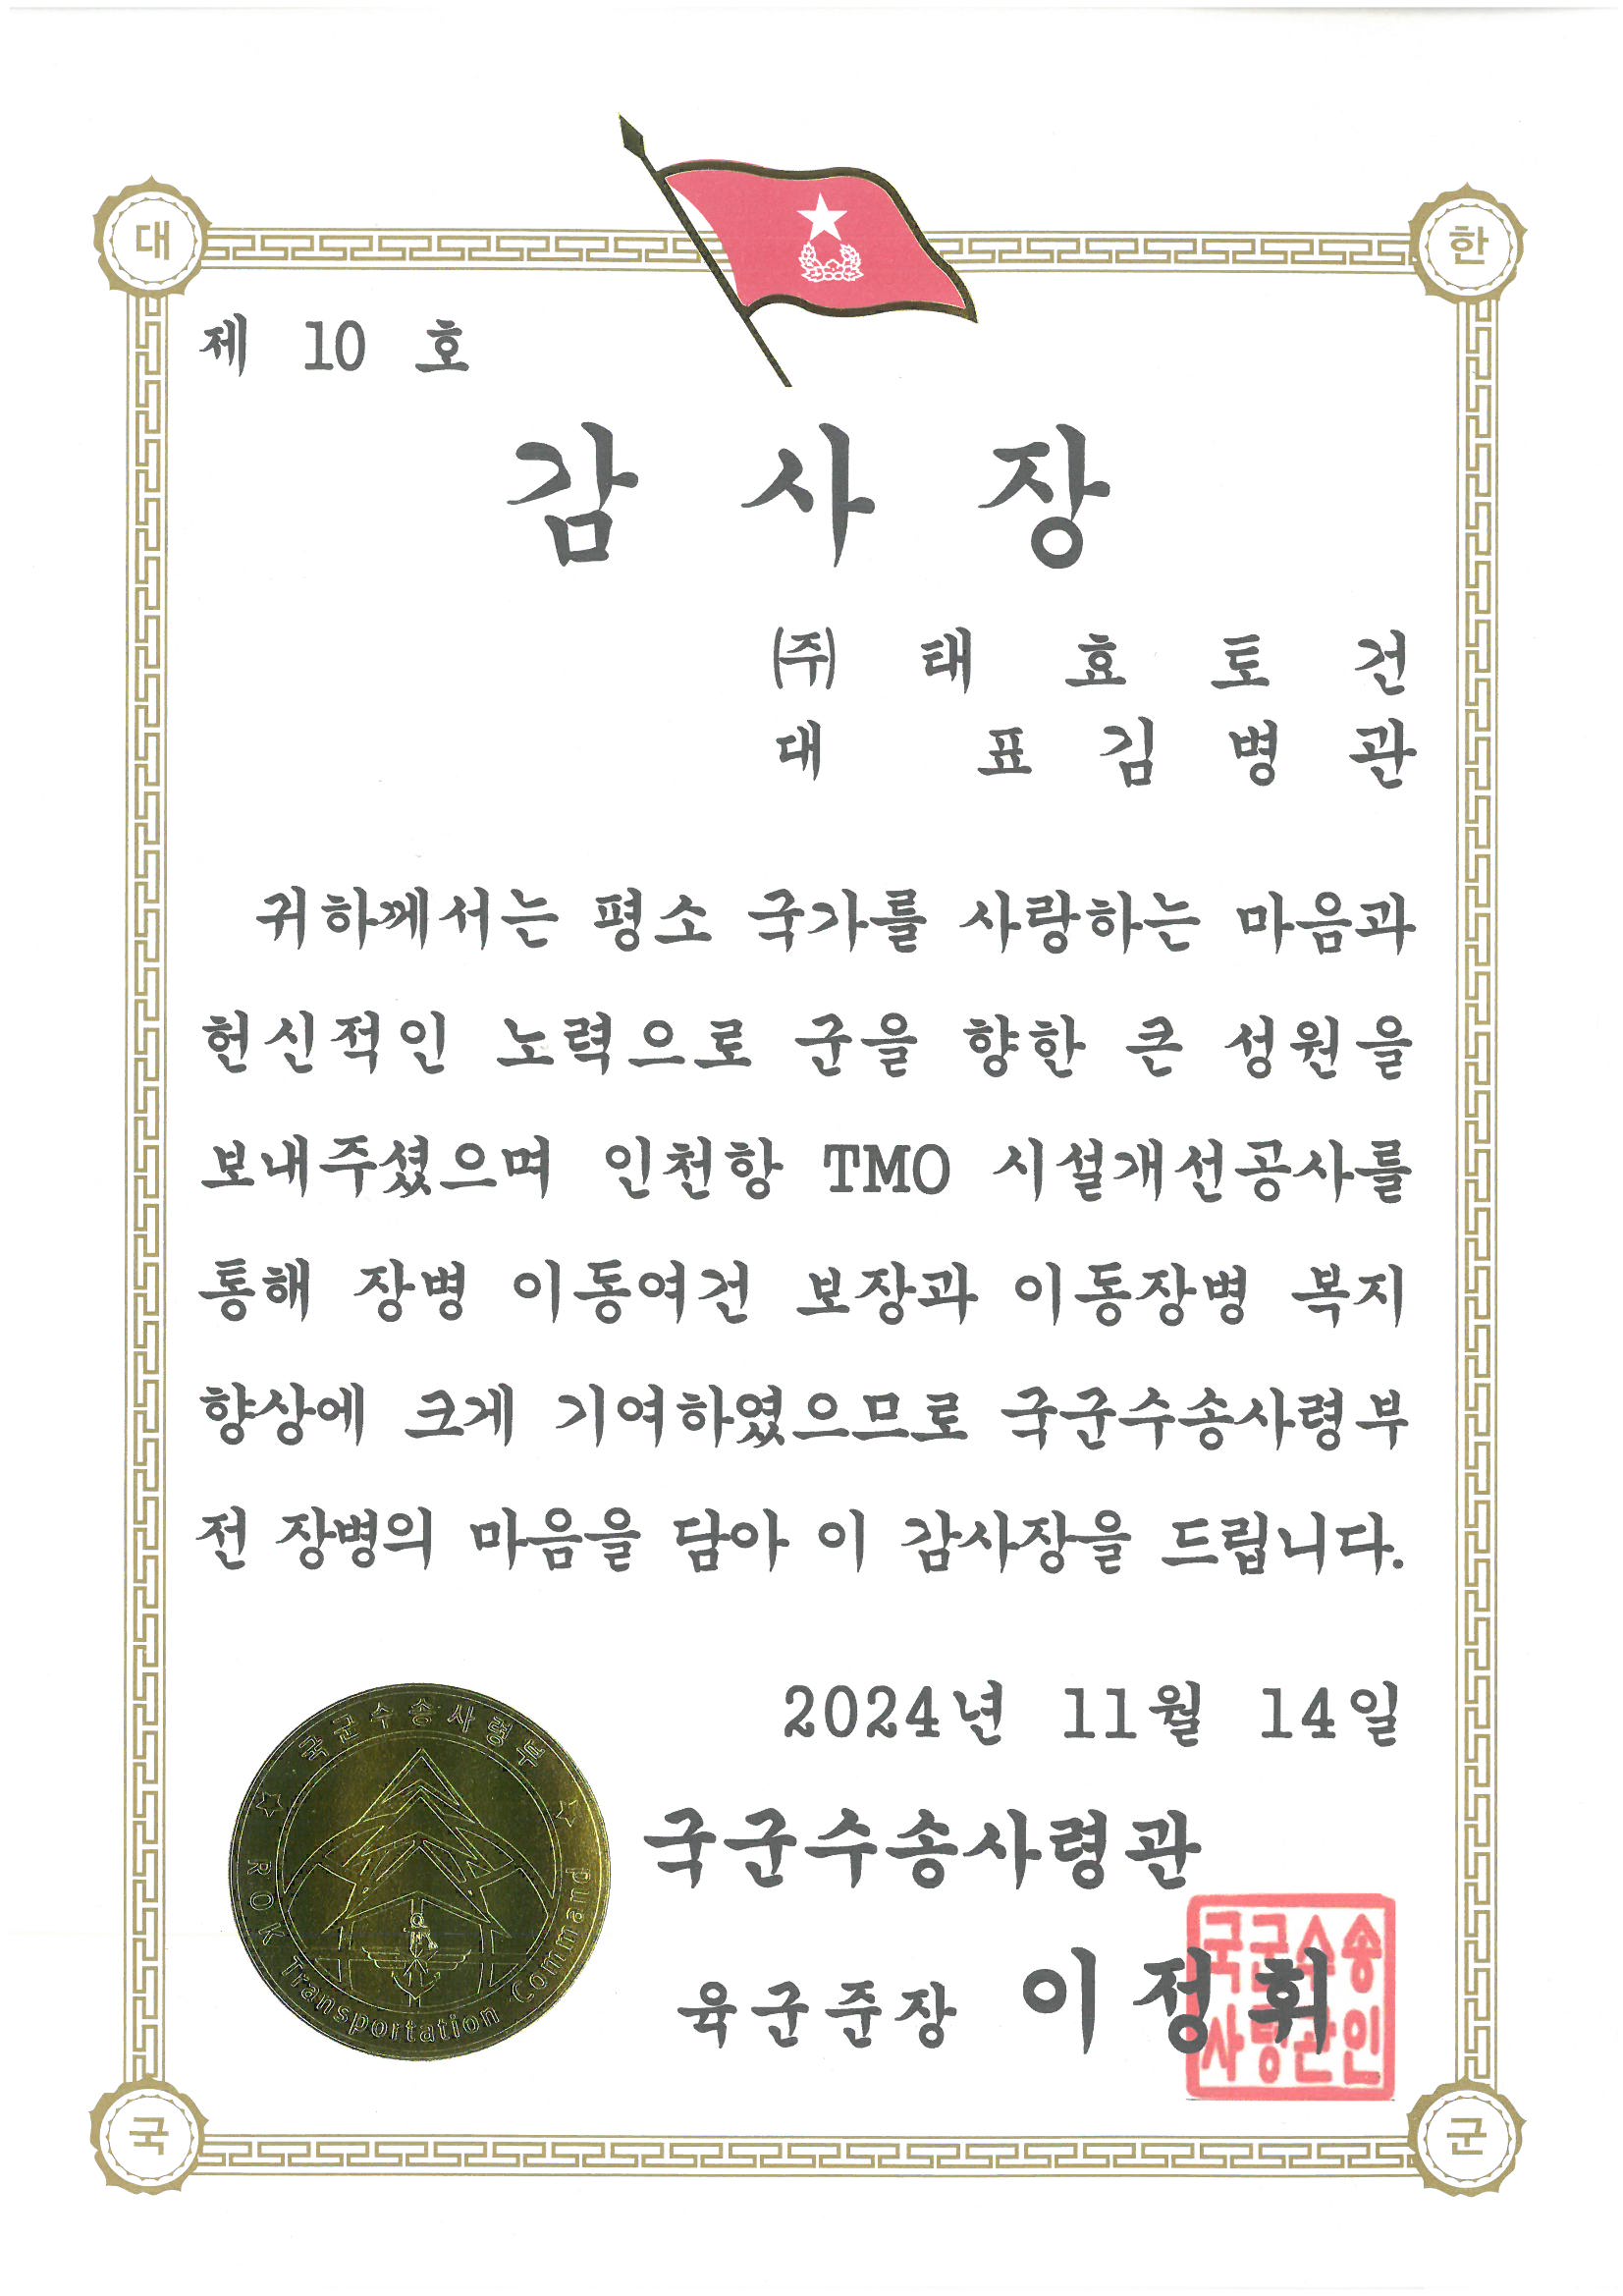 대 한
제 10 호
감 사 장
㈜ 태 효 토 건
대 표 김 병 관
귀하께서는 평소 국가를 사랑하는 마음과
헌신적인 노력으로 군을 향한 큰 성원을
보내주셨으며 인천항 TMO 시설개선공사를
통해 장병 이동여건 보장과 이동장병 복지
향상에 크게 기여하였으므로 국군수송사령부
전 장병의 마음을 담아 이 감사장을 드립니다.
2024년 11월 14일
국군수송사령관
육군준장 이정휘
국군수송
사령관인
국군수송사령부
ROK Transportation Command
국 군